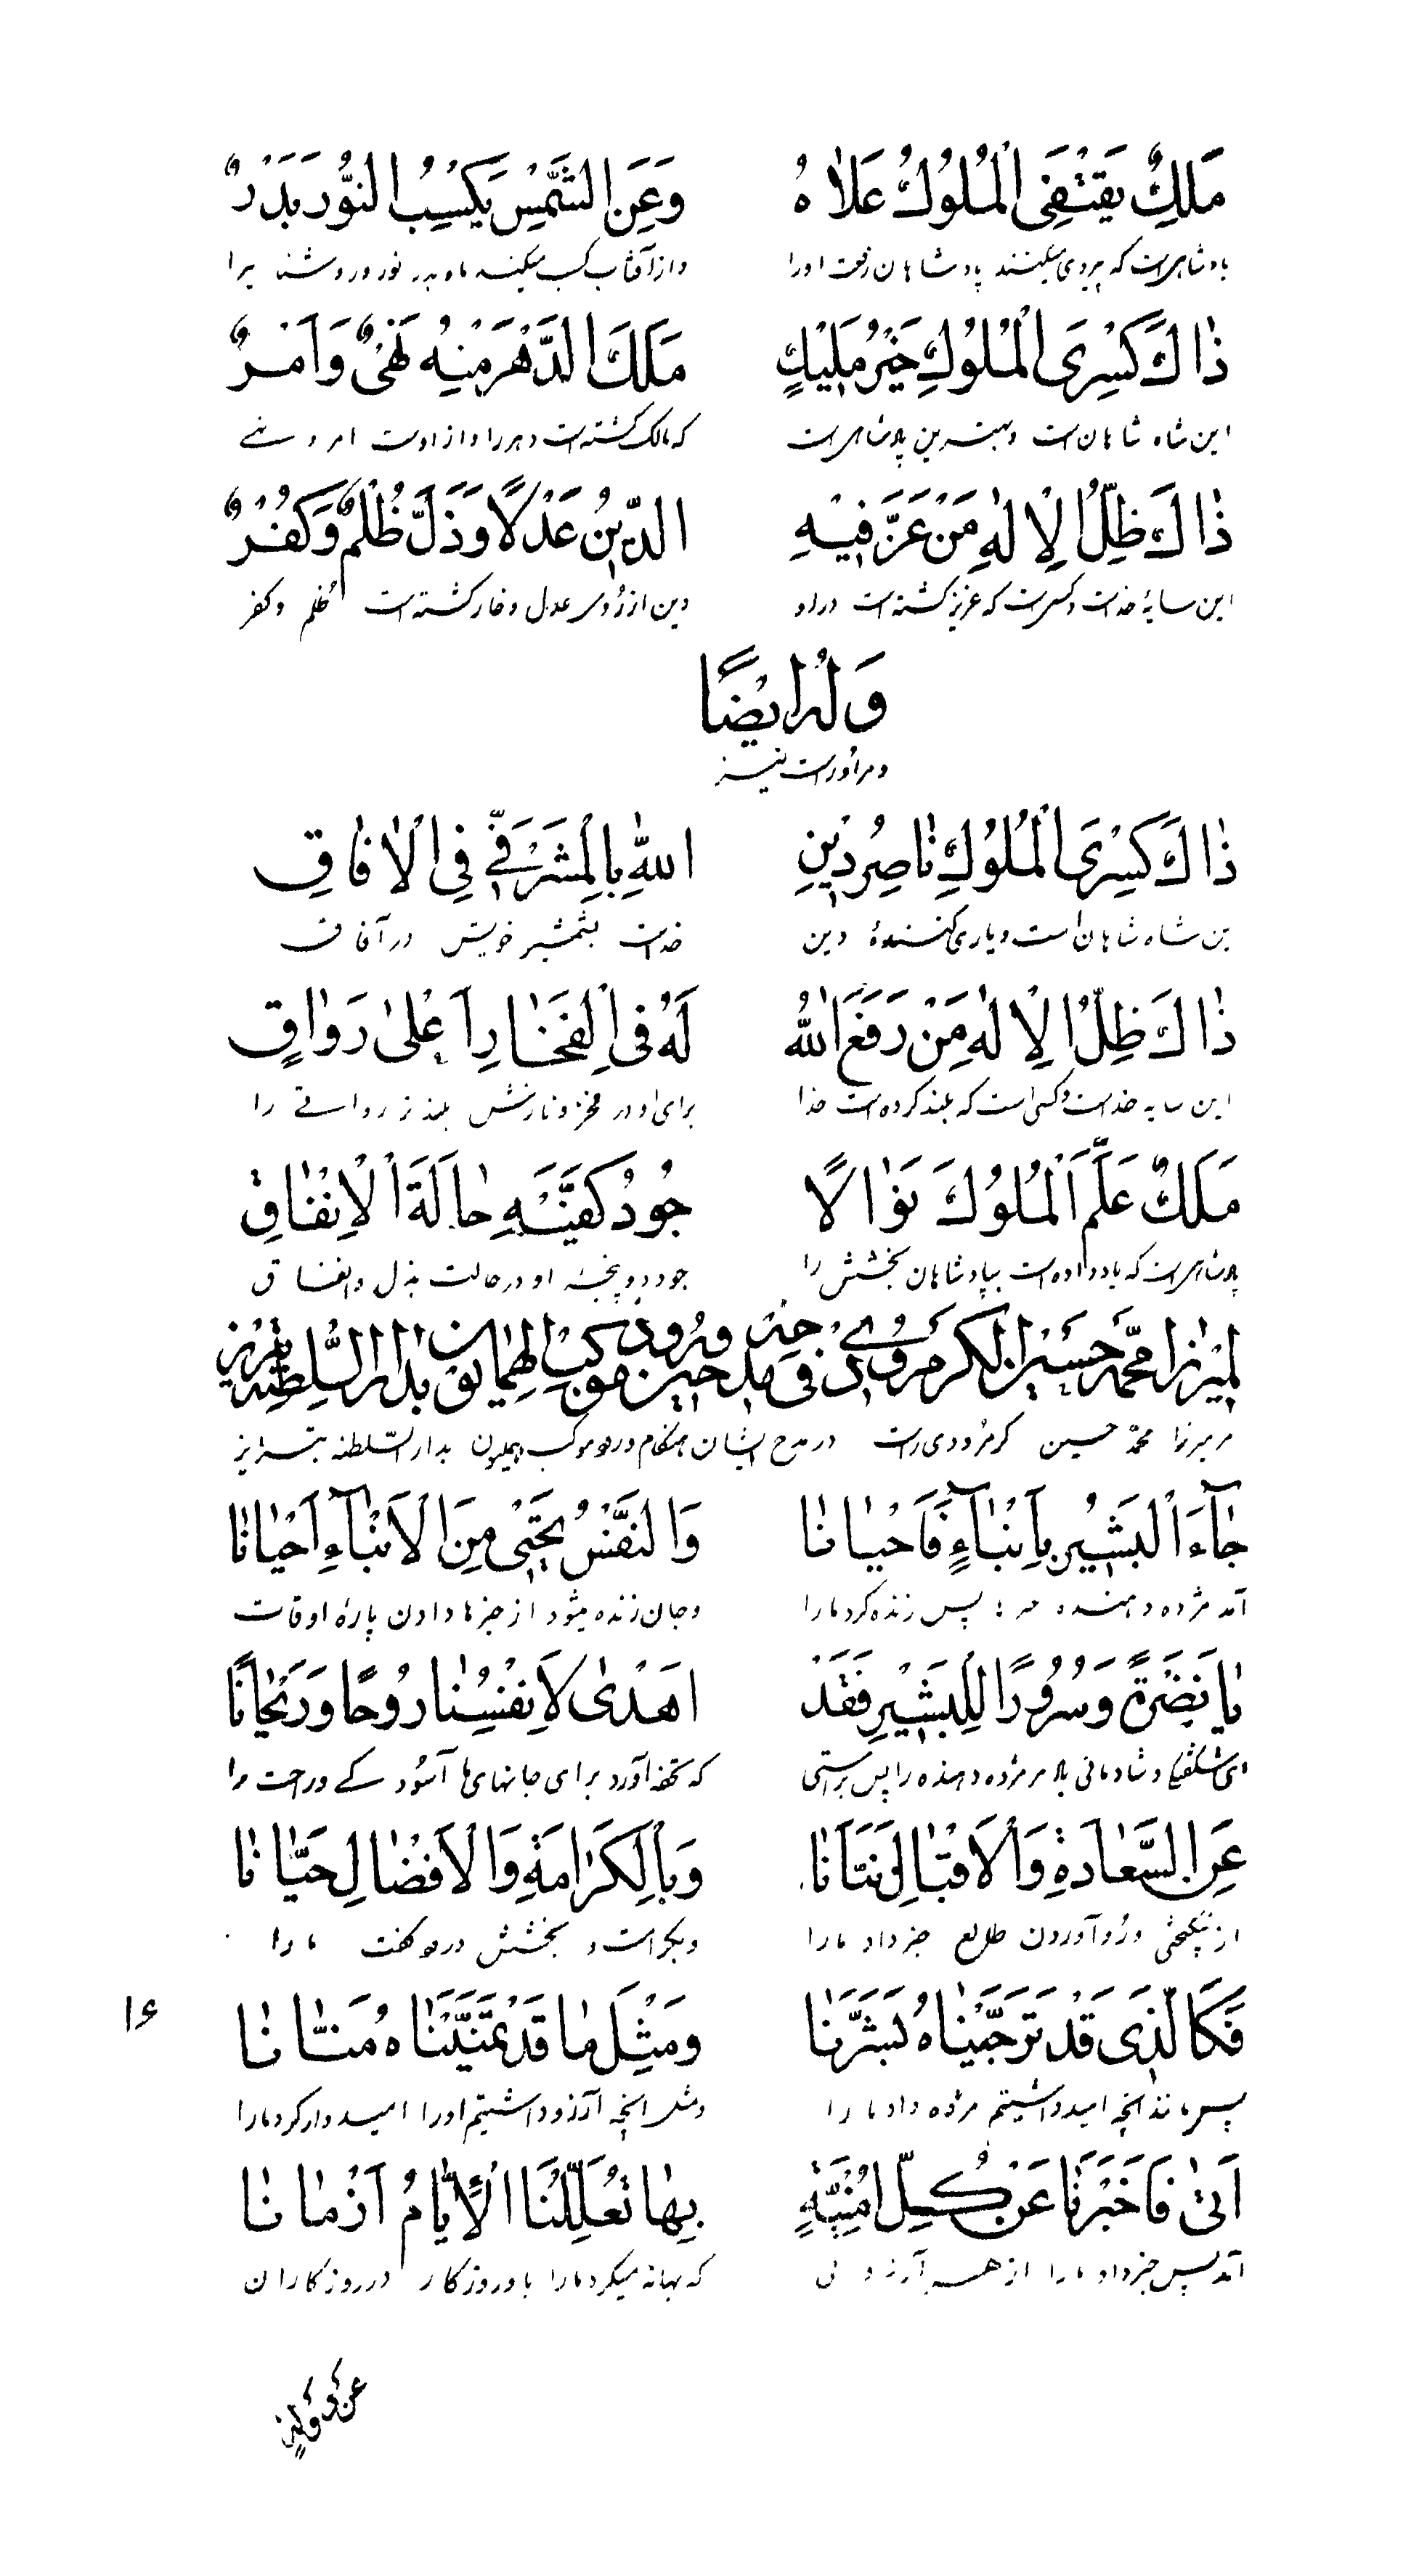 مَلِكٌ يَقْتَفِى الْمُلُوكُ عَلَاهُ وَعَنِ الشَّمْسِ يَكْسِبُ النُّورَ بَدْرٌ
پادشاهیست که پیروی میکنند پادشاهان رفعت اورا و از آفتاب کسب میکند ماه بدر نور و روشنا یرا
ذٰاكَ كَسْرَى الْمُلُوكِ خَيْرُ مَلِيْكٍ مَلَكَ الدَّهْرَ مِنْهُ نَهْىٌ وَاَمْرٌ
این شاه شاهان است و بهترین پادشاهیست که مالک گشته است دهر را و از اوست امر و نهی
ذٰاكَ ظِلُّ الْاِلٰهِ مَنْ عَزَّ فِيْهِ الدّيْنُ عَدْلًا وَذَلَّ ظُلْمٌ وَكُفْرٌ
این سایهٔ خداست و کسیست که عزیز گشته است در او دین از روی عدل و خار گشته است ظلم و کفر
وَلَهُ اَيْضًا
و مر اوراست نیز
ذٰاكَ كَسْرَى الْمُلُوكِ نٰاصِرُ دِيْنِ اللّٰهِ بِالْمِشْرَفِيّ فِى الْاٰفٰاقِ
ین شاه شاهان است و یاری کنندهٔ دین خداست بشمشیر خویش در آفاق
ذٰاكَ ظِلُّ الْاِلٰهِ مَنْ رَفَعَ اللّٰهُ لَهُ فِى الْفَخٰارِ اَعْلىٰ رَوٰاقٍ
این سایه خداست و کسی است که بلند کرده است خدا برای او در فخر و نازش بلند تر رواقی را
مَلَكٌ عَلَّمَ الْمُلُوكَ نَوٰالًا جُودُ كَفَّيْهِ حٰالَةَ الْاِنْفٰاقِ
پادشاهیست که یاد داده است بپادشاهان بخشش را جود دو پنجه او در حالت بذل و انفاق
لميرزا محمّد حسين الكرمرودى فى مدحه حين ورود موكب الهمايون بدار السّلطنه تبريز
مر میرزا محمّد حسین کرمرودی راست در مدح ایشان هنگام ورود موکب همایون بدار السّلطنه تبریز
جٰاۤءَ الْبَشِيْرُ بِاَنْبٰاۤءٍ فَاَحْيٰانٰا وَالنَّفْسُ يَحْيَىٰ مِنَ الْاَنْبٰاۤءِ اَحْيٰانًا
آمد مژده دهنده پس زنده کرد مارا و جان زنده میشود از خبرها دادن پارهٔ اوقات
يٰا نَضْرَةً وَسُرُورًا لِلْبَشِيْرِ فَقَدْ اَهْدىٰ لِاَنْفُسِنٰا رُوحًا وَرَيْحٰانًا
ای شکفتگی و شادمانی بلا مر مژده دهنده را پس براستی که تحفه آورد برای جانهای ما آسود کی و راحت را
عَنِ السَّعٰادَةِ وَالْاَقْبٰالِ نَبَّأَنٰا وَبِالْكَرٰامَةِ وَالْاَفْضٰالِ حَيّٰانٰا
از نیکبختی و رو آوردن طالع خبر داد مارا و بکرامت و بخشش درود گفت مارا
فَكَالَّذِى قَدْ تَرَجَّيْنٰاهُ بَشَّرَنٰا وَمِثْلَ مٰا قَدْ تَمَنَّيْنٰاهُ مَنّٰانٰا
پس مانند آنچه امید داشتیم مژده داد مارا و مثل آنچه آرزو داشتیم اورا امیدوار کرد مارا
اَتىٰ فَاَخْبَرَنٰا عَنْ كُلِّ اُمْنِيَّةٍ بِهٰا تُعَلِّلُنَا الْاَيّٰامُ اَزْمٰانٰا
آمد پس خبر داد مارا از همه آرزو ئی که بهانه میکرد مارا با و روزگار در روزگاران
۱۶